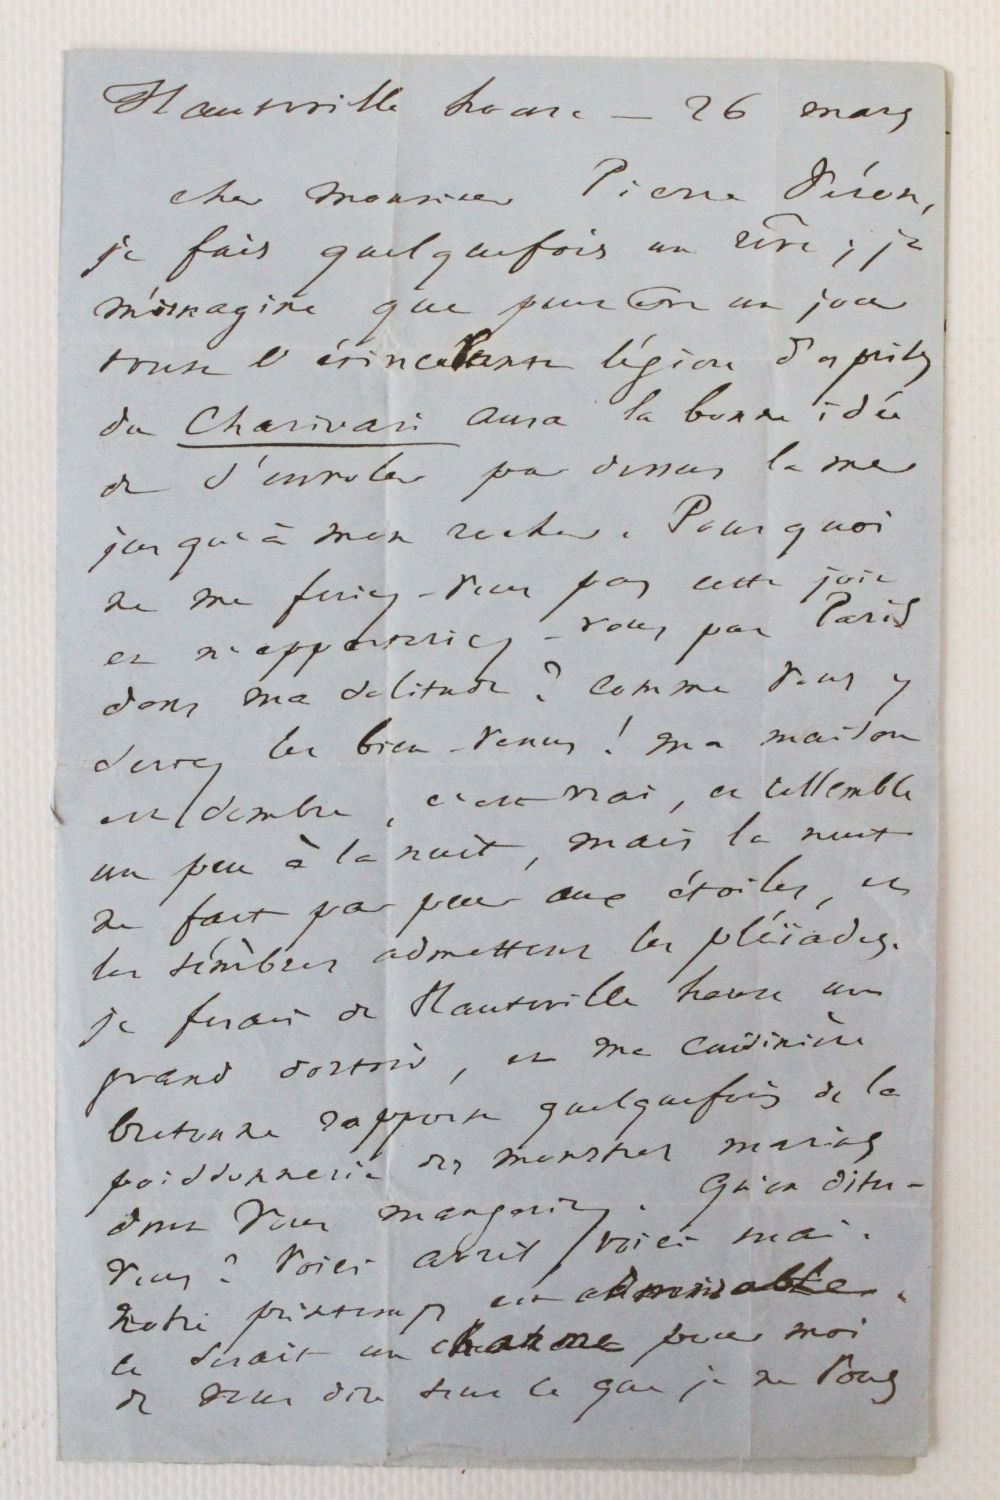 Hauteville house — 26 mars
cher monsieur Pierre Véron,
je fais quelquefois un rêve ; je
m'imagine que peut être un jour
toute l'étincelante légion d'esprits
du Charivari aura la bonne idée
de s'envoler par dessus la mer
jusqu'à mon rocher. Pourquoi
ne me feriez-vous pas cette joie
et n'apporteriez-vous pas Paris
dans ma solitude ? comme vous y
seriez les bien-venus ! ma maison
est sombre, c'est vrai, et ressemble
un peu à la nuit, mais la nuit
ne fait pas peur aux étoiles, et
les ténèbres admettent les pléïades.
je ferais de Hauteville house un
grand dortoir, et ma cuisinière
bretonne rapporte quelquefois de la
poissonnerie des monstres marins
dont vous mangeriez. Qu'en dites-
vous ? Voici avril, voici mai.
notre printemps est admirable.
ce serait un charme pour moi
de vous dire tout ce que je ne vous